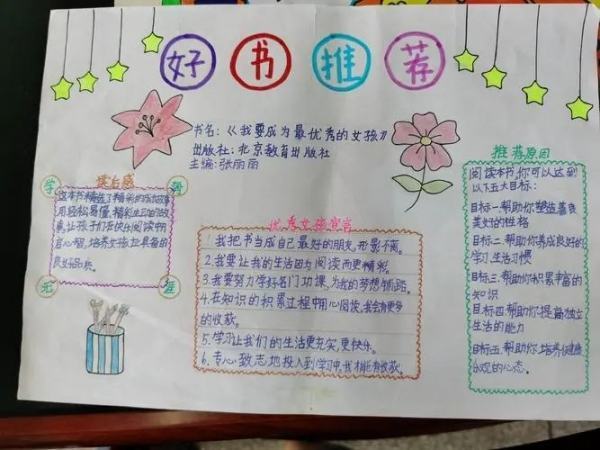 好书推荐
书名:《我要成为最优秀的女孩》
出版社:北京教育出版社
主编:张丽丽
读后感
学
海
无
涯
这本书精选了精彩的成长故事
用轻松易懂,精彩生动的
让孩子们在快乐阅读中
培养女孩应具备的
良好品质。
优秀女孩宣言
1.我把书当成自己最好的朋友,形影不离。
2.我要让我的生活因为阅读而更精彩。
3.我要努力学好各门功课,为我的梦想铺路。
4.在知识的积累过程中用心阅读,我会有更多
的收获。
5.学习让我们的生活更充实,更快乐。
6.专心致志地投入到学习中,我才能有收获。
推荐原因
阅读本书,你可以达到
以下五大目标:
目标一.帮助你塑造善良
美好的性格
目标二.帮助你养成良好的
学习.生活习惯
目标三.帮助你积累丰富的
知识
目标四.帮助你提高独立
生活的能力
目标五.帮助你.培养健康
的心态。